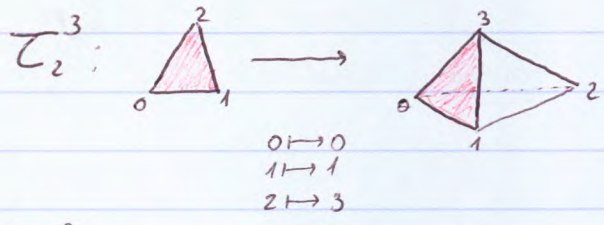 τ₂³ :
2
0 1
3
0 2
1
0 ↦ 0
1 ↦ 1
2 ↦ 3